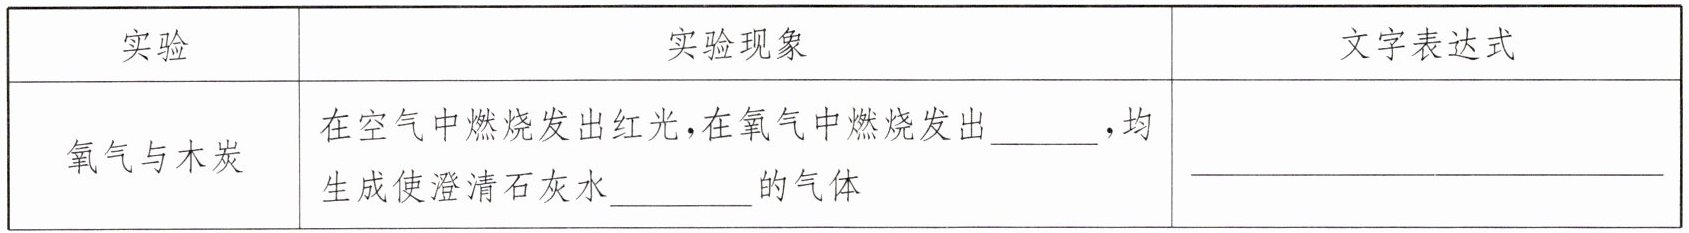 实验 实验现象 文字表达式
氧气与木炭
在空气中燃烧发出红光,在氧气中燃烧发出______,均
生成使澄清石灰水________的气体